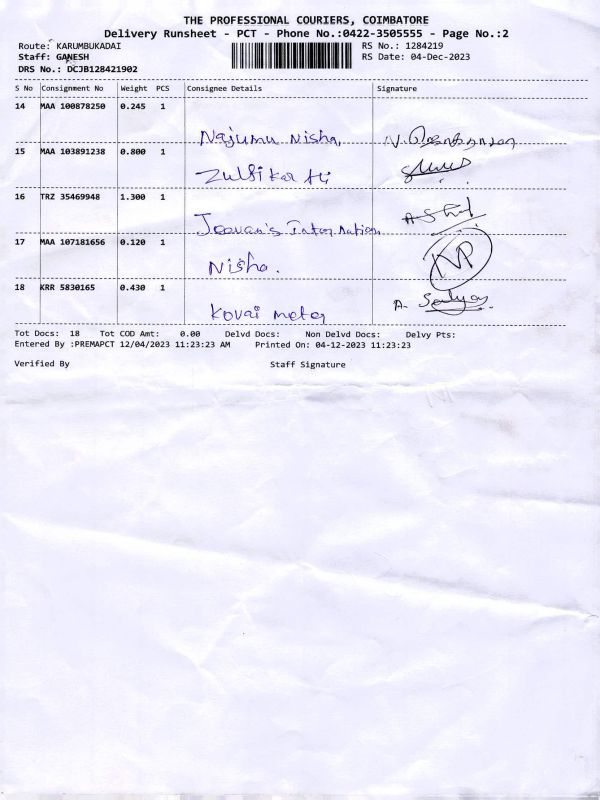 THE PROFESSIONAL COURIERS, COIMBATORE
Delivery Runsheet - PCT - Phone No.:0422-3505555 - Page No.:2
Route: KARUMBUKADAI RS No.: 1284219
Staff: GANESH RS Date: 04-Dec-2023
DRS No.: DCJB128421902
S No Consignment No Weight PCS Consignee Details Signature
14 MAA 100878250 0.245 1
Najumu Nisha
15 MAA 103891238 0.800 1
Zulfikar Ali
16 TRZ 35469948 1.300 1
Jeevan's Internation
17 MAA 107181656 0.120 1
Nisha.
18 KRR 5830165 0.430 1
Kovai meter
Tot Docs: 18 Tot COD Amt: 0.00 Delvd Docs: Non Delvd Docs: Delvy Pts:
Entered By :PREMAPCT 12/04/2023 11:23:23 AM Printed On: 04-12-2023 11:23:23
Verified By Staff Signature